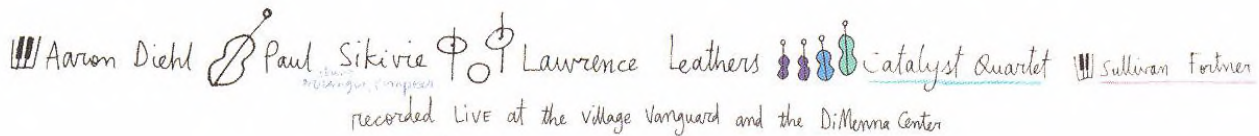 Aaron Diehl Paul Sikivie Lawrence Leathers Catalyst Quartet Sullivan Fortner
string arranger, composer
recorded LIVE at the Village Vanguard and the DiMenna Center